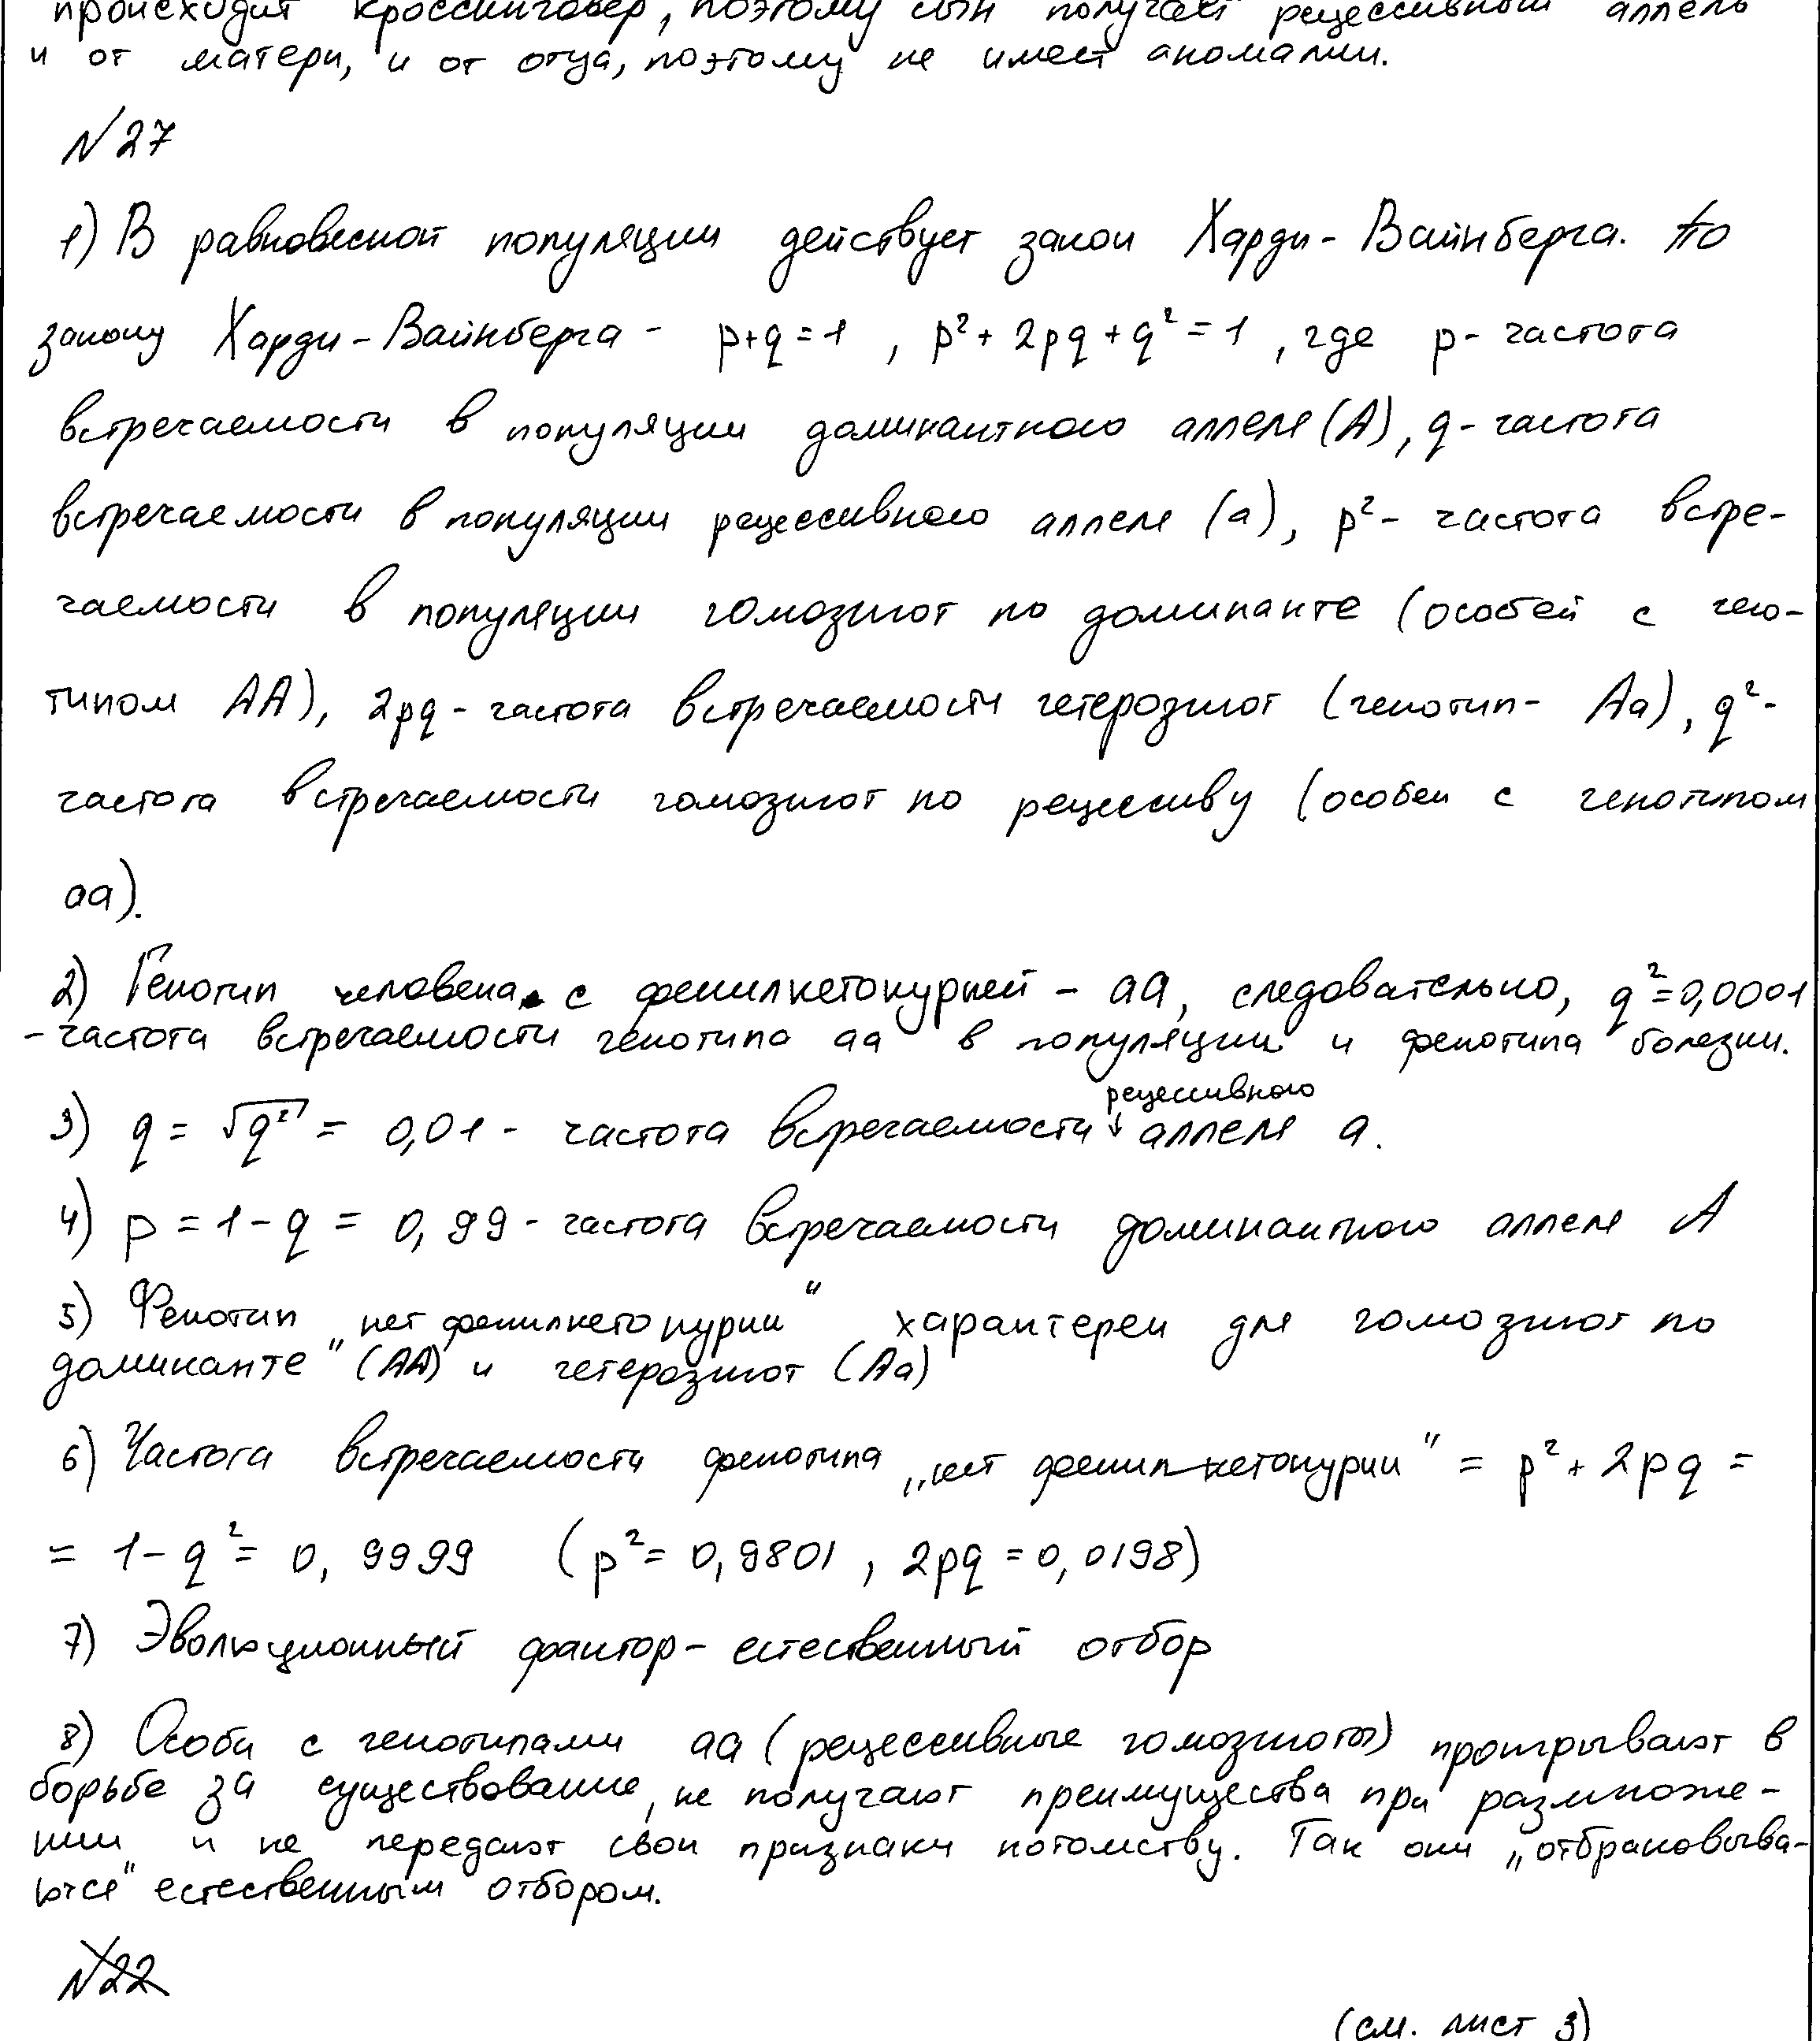 происходит кроссинговер, поэтому сын получает рецессивный аллель
и от матери, и от отца, поэтому не имеет аномалии.
№27
1) В равновесной популяции действует закон Харди-Вайнберга. По
закону Харди-Вайнберга - p+q=1, p²+2pq+q²=1, где p- частота
встречаемости в популяции доминантного аллеля (А), q- частота
встречаемости в популяции рецессивного аллеля (а), p²- частота встре-
чаемости в популяции гомозигот по доминанте (особей с гено-
типом АА), 2pq- частота встречаемости гетерозигот (генотип- Аа), q²-
частота встречаемости гомозигот по рецессиву (особей с генотипом
аа).
2) Генотип человека с фенилкетонурией - аа, следовательно, q²=0,0001
- частота встречаемости генотипа аа в популяции и фенотипа болезни.
3) q = √q² = 0,01 - частота встречаемости рецессивного аллеля а.
4) p = 1-q = 0,99 - частота встречаемости доминантного аллеля А
5) Фенотип „нет фенилкетонурии" характерен для гомозигот по
доминанте" (АА) и гетерозигот (Аа)
6) Частота встречаемости фенотипа „нет фенилкетонурии" = p²+2pq =
= 1-q² = 0,9999 (p²=0,9801, 2pq=0,0198)
7) Эволюционный фактор- естественный отбор
8) Особи с генотипами аа (рецессивные гомозиготы) проигрывают в
борьбе за существование, не получают преимущества при размноже-
нии и не передают свои признаки потомству. Так они „отбраковыва-
ются" естественным отбором.
№22
(см. лист 3)